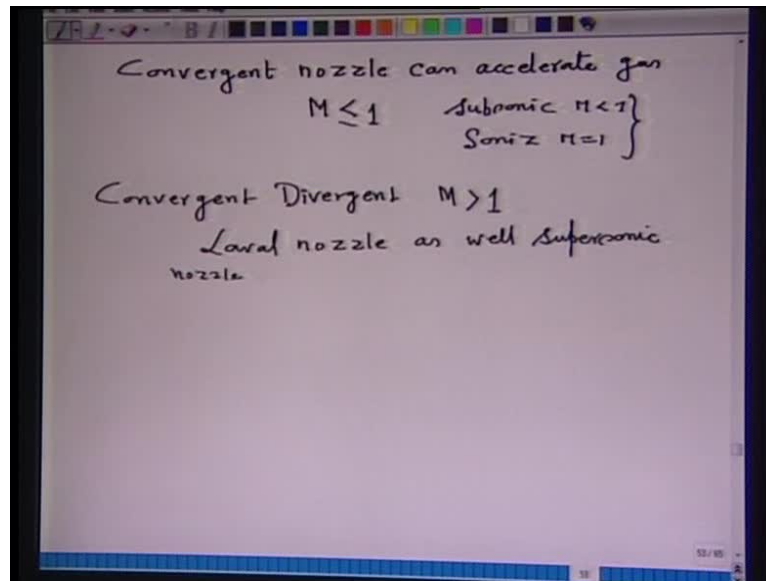 Convergent nozzle can accelerate gas
M ≤ 1 Subsonic M < 1
Soniz M=1
Convergent Divergent M > 1
Laval nozzle as well supersonic
nozzle
53/65